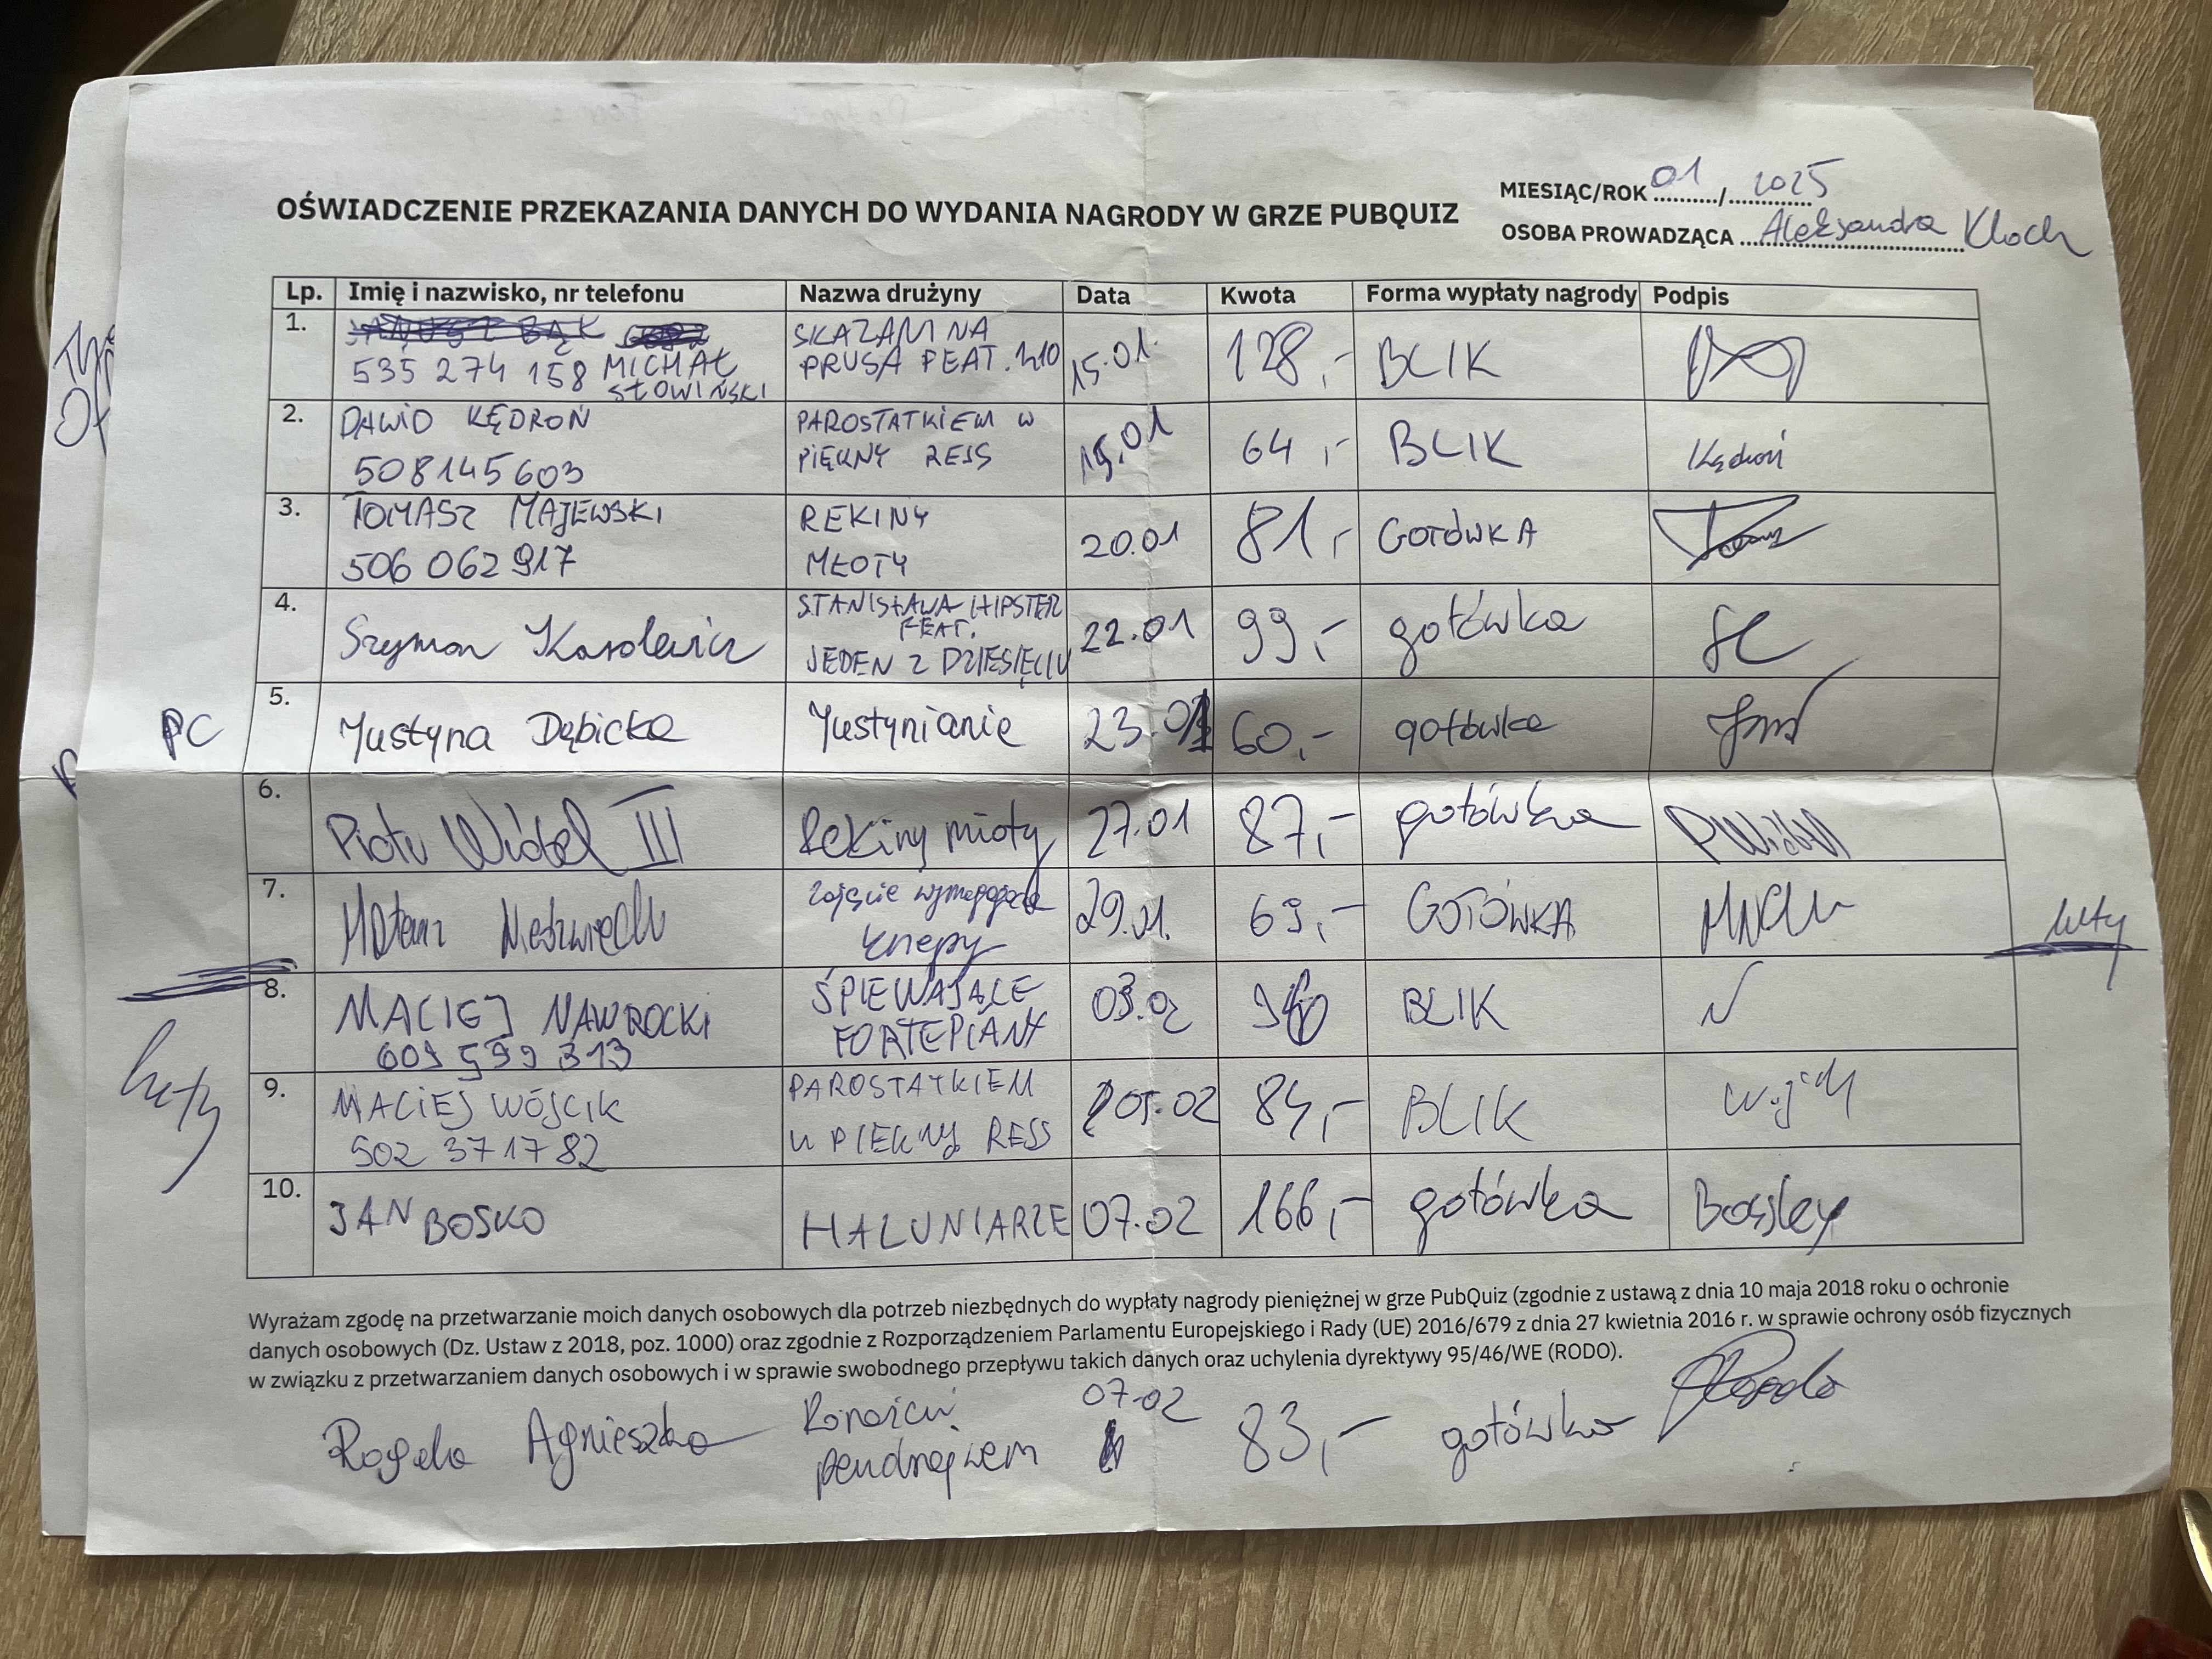 MIESIĄC/ROK 01 / 2025
OŚWIADCZENIE PRZEKAZANIA DANYCH DO WYDANIA NAGRODY W GRZE PUBQUIZ
OSOBA PROWADZĄCA Aleksandra Kloch
Lp. Imię i nazwisko, nr telefonu Nazwa drużyny Data Kwota Forma wypłaty nagrody Podpis
1. SKAZANI NA
535 274 158 MICHAŁ PRUSA FEAT. 1z10 15.01. 128,- BLIK
SŁOWIŃSKI
2. DAWID KĘDROŃ PAROSTATKIEM W 15.01
508145603 PIĘKNY REJS 64,- BLIK Kędroń
3. TOMASZ MAJEWSKI REKINY
506 062 917 MŁOTY 20.01 81,- GOTÓWKA
4. STANISŁAWA HIPSTER
FEAT.
Szymon Karolewicz JEDEN Z DZIESIĘCIU 22.01 99,- gotówka
PC 5. Justyna Dębicka Justynianie 23.01 60,- gotówka
6. Piotr Wróbel III Rekiny młoty 27.01 87,- gotówka
7. Zajęcie wymagające
knepy 29.01. 69,- GOTÓWKA
luty
8. MACIEJ NAWROCKI ŚPIEWAJĄCE 03.02 BLIK
609 599 313 FORTEPIANY
luty
9. MACIEJ WÓJCIK PAROSTATKIEM 05.02 84,- BLIK
502 371782 W PIĘKNY REJS
10. JAN BOSKO HALUNIARZE 07.02 166,- gotówka Bossley
Wyrażam zgodę na przetwarzanie moich danych osobowych dla potrzeb niezbędnych do wypłaty nagrody pieniężnej w grze PubQuiz (zgodnie z ustawą z dnia 10 maja 2018 roku o ochronie
danych osobowych (Dz. Ustaw z 2018, poz. 1000) oraz zgodnie z Rozporządzeniem Parlamentu Europejskiego i Rady (UE) 2016/679 z dnia 27 kwietnia 2016 r. w sprawie ochrony osób fizycznych
w związku z przetwarzaniem danych osobowych i w sprawie swobodnego przepływu takich danych oraz uchylenia dyrektywy 95/46/WE (RODO).
Rogala Agnieszka 07.02 83,- gotówka